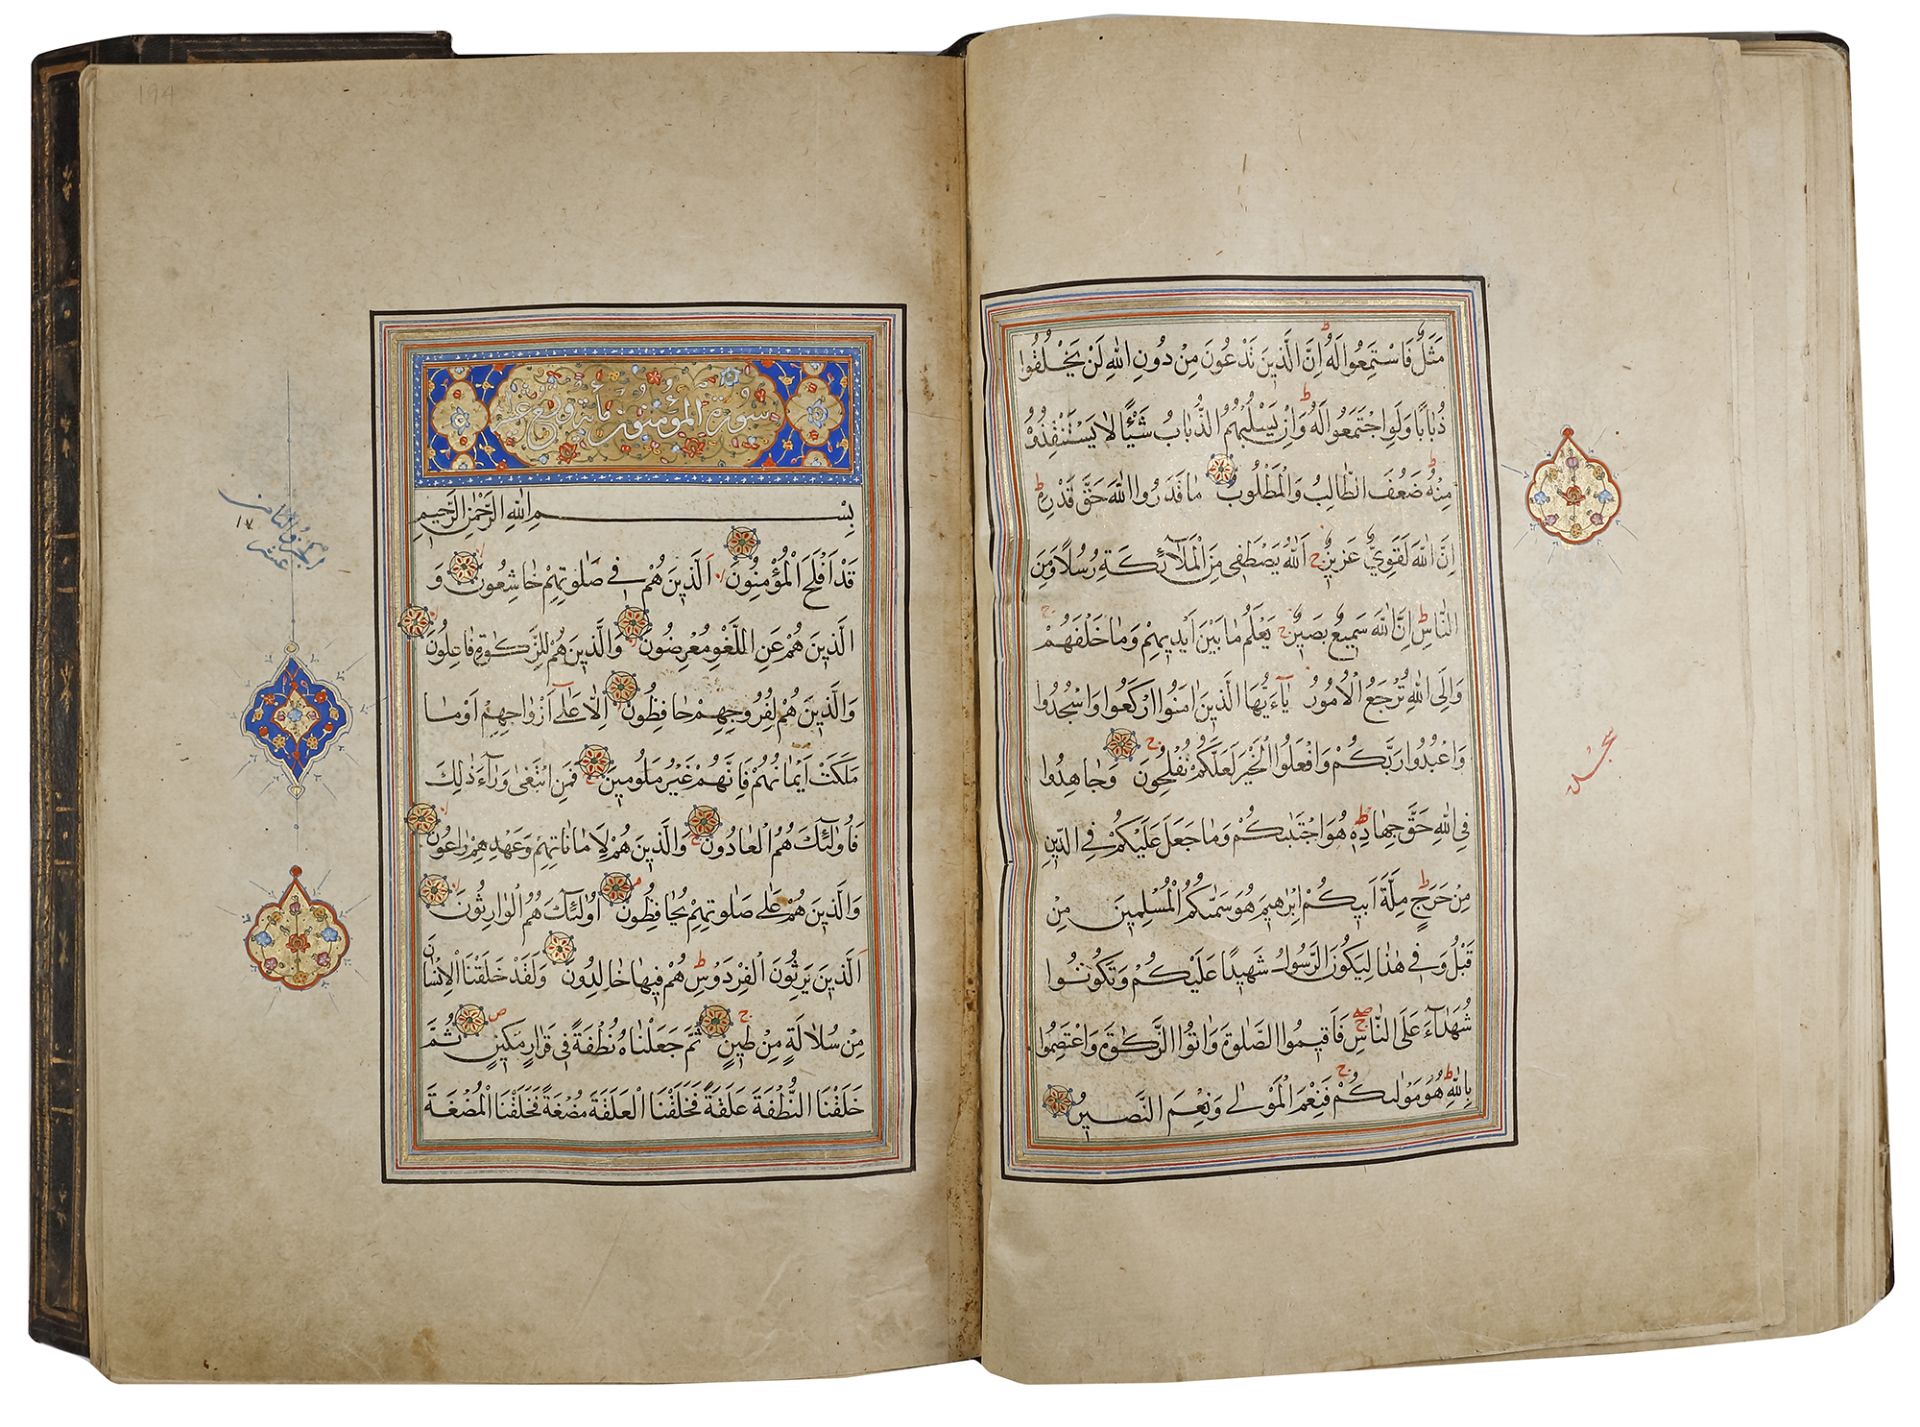 مَثَلٌ فَاسْتَمِعُوا لَهُ اِنَّ الَّذِينَ تَدْعُونَ مِنْ دُونِ اللهِ لَنْ يَخْلُقُوا
ذُبَابًا وَلَوِ اجْتَمَعُوا لَهُ وَاِنْ يَسْلُبْهُمُ الذُّبَابُ شَيْئًا لَا يَسْتَنْقِذُوهُ
مِنْهُ ضَعُفَ الطَّالِبُ وَالْمَطْلُوبُ مَا قَدَرُوا اللهَ حَقَّ قَدْرِهِ
اِنَّ اللهَ لَقَوِيٌّ عَزِيزٌ اَللهُ يَصْطَفِي مِنَ الْمَلَآئِكَةِ رُسُلًا وَمِنَ
النَّاسِ اِنَّ اللهَ سَمِيعٌ بَصِيرٌ يَعْلَمُ مَا بَيْنَ اَيْدِيهِمْ وَمَا خَلْفَهُمْ
وَاِلَى اللهِ تُرْجَعُ الْاُمُورُ يَآءَيُّهَا الَّذِينَ اٰمَنُوا ارْكَعُوا وَاسْجُدُوا
وَاعْبُدُوا رَبَّكُمْ وَافْعَلُوا الْخَيْرَ لَعَلَّكُمْ تُفْلِحُونَ وَجَاهِدُوا
فِي اللهِ حَقَّ جِهَادِهِ هُوَ اجْتَبٰىكُمْ وَمَا جَعَلَ عَلَيْكُمْ فِي الدِّينِ
مِنْ حَرَجٍ مِلَّةَ اَبِيكُمْ اِبْرٰهِيمَ هُوَ سَمّٰىكُمُ الْمُسْلِمِينَ مِنْ
قَبْلُ وَفِي هٰذَا لِيَكُونَ الرَّسُولُ شَهِيدًا عَلَيْكُمْ وَتَكُونُوا
شُهَدَآءَ عَلَى النَّاسِ فَاَقِيمُوا الصَّلٰوةَ وَاٰتُوا الزَّكٰوةَ وَاعْتَصِمُوا
بِاللهِ هُوَ مَوْلٰىكُمْ فَنِعْمَ الْمَوْلٰى وَنِعْمَ النَّصِيرُ
194
سورة المؤمنون مائة و
بِسْمِ اللهِ الرَّحْمٰنِ الرَّحِيمِ
قَدْ اَفْلَحَ الْمُؤْمِنُونَ اَلَّذِينَ هُمْ فِي صَلٰوتِهِمْ خَاشِعُونَ وَ
الَّذِينَ هُمْ عَنِ اللَّغْوِ مُعْرِضُونَ وَالَّذِينَ هُمْ لِلزَّكٰوةِ فَاعِلُونَ
وَالَّذِينَ هُمْ لِفُرُوجِهِمْ حَافِظُونَ اِلَّا عَلٰٓى اَزْوَاجِهِمْ اَوْ مَا
مَلَكَتْ اَيْمَانُهُمْ فَاِنَّهُمْ غَيْرُ مَلُومِينَ فَمَنِ ابْتَغٰى وَرَآءَ ذٰلِكَ
فَاُولٰٓئِكَ هُمُ الْعَادُونَ وَالَّذِينَ هُمْ لِاَمَانَاتِهِمْ وَعَهْدِهِمْ رَاعُونَ
وَالَّذِينَ هُمْ عَلٰى صَلَوٰتِهِمْ يُحَافِظُونَ اُولٰٓئِكَ هُمُ الْوَارِثُونَ
اَلَّذِينَ يَرِثُونَ الْفِرْدَوْسَ هُمْ فِيهَا خَالِدُونَ وَلَقَدْ خَلَقْنَا الْاِنْسَانَ
مِنْ سُلَالَةٍ مِنْ طِينٍ ثُمَّ جَعَلْنَاهُ نُطْفَةً فِي قَرَارٍ مَكِينٍ ثُمَّ
خَلَقْنَا النُّطْفَةَ عَلَقَةً فَخَلَقْنَا الْعَلَقَةَ مُضْغَةً فَخَلَقْنَا الْمُضْغَةَ